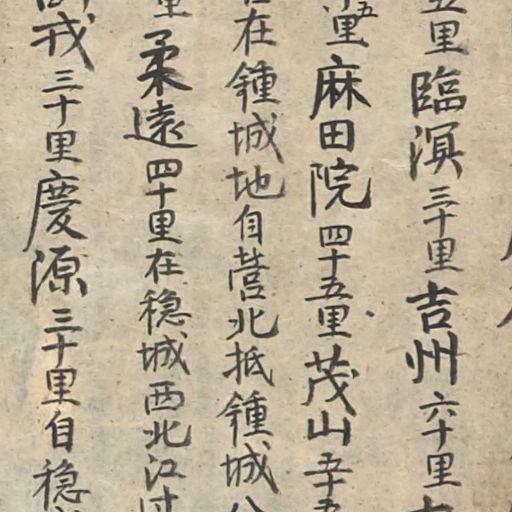 五里臨溟三十里吉州六十里
五里麻田院四十五里茂山五十五
在鍾城地自營北抵鍾城八
里柔遠四十里在稳城西北江
戎三十里慶源三十里自稳